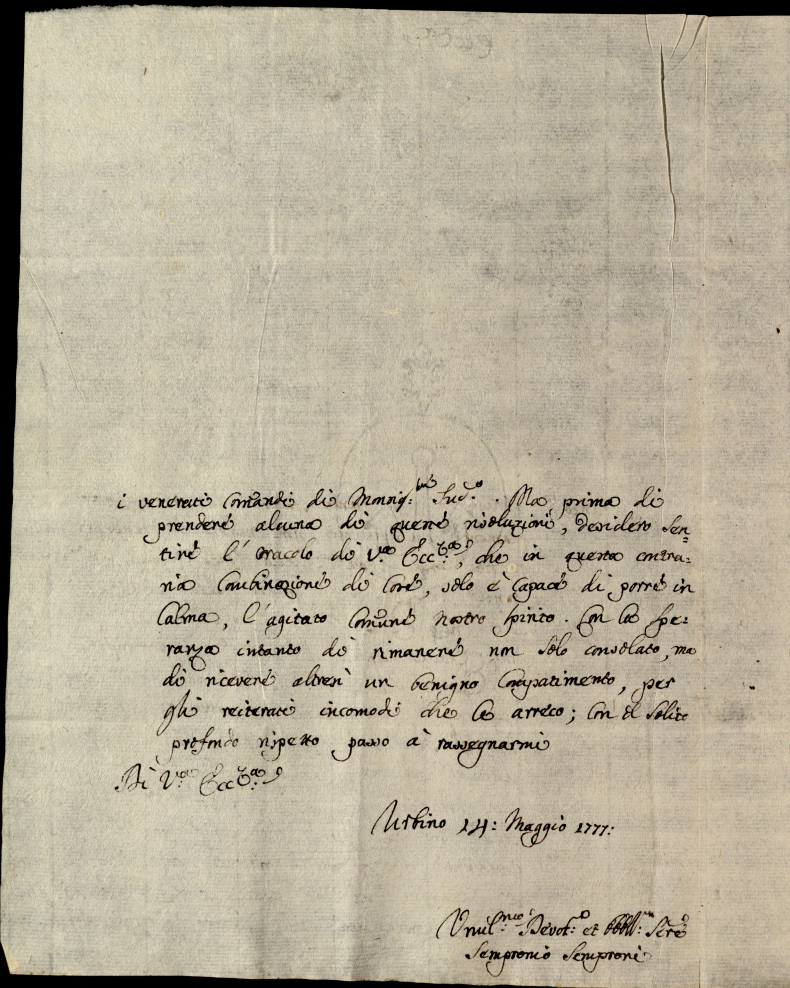 i venerati Comandi di Monsig.re Sud.o. Ma prima di
prendere alcuna di queste risoluzioni, desidero sen=
tire l'oracolo di V.a Ecc.za, che in questa contra=
ria Combinazione di Cose, solo è Capace di porre in
Calma, l'agitato Comune nostro Spirito. Con la spe=
ranza intanto di rimanere non solo consolato, ma
di ricevere altresì un benigno Compatimento, per
gli reiterati incomodi che le arreco; Con il Solito
profondo rispetto passo à rassegnarmi
Di V.a Ecc.za
Urbino 14: Maggio 1777:
Umil.mo Devot.o et Servre
Sempronio Semproni